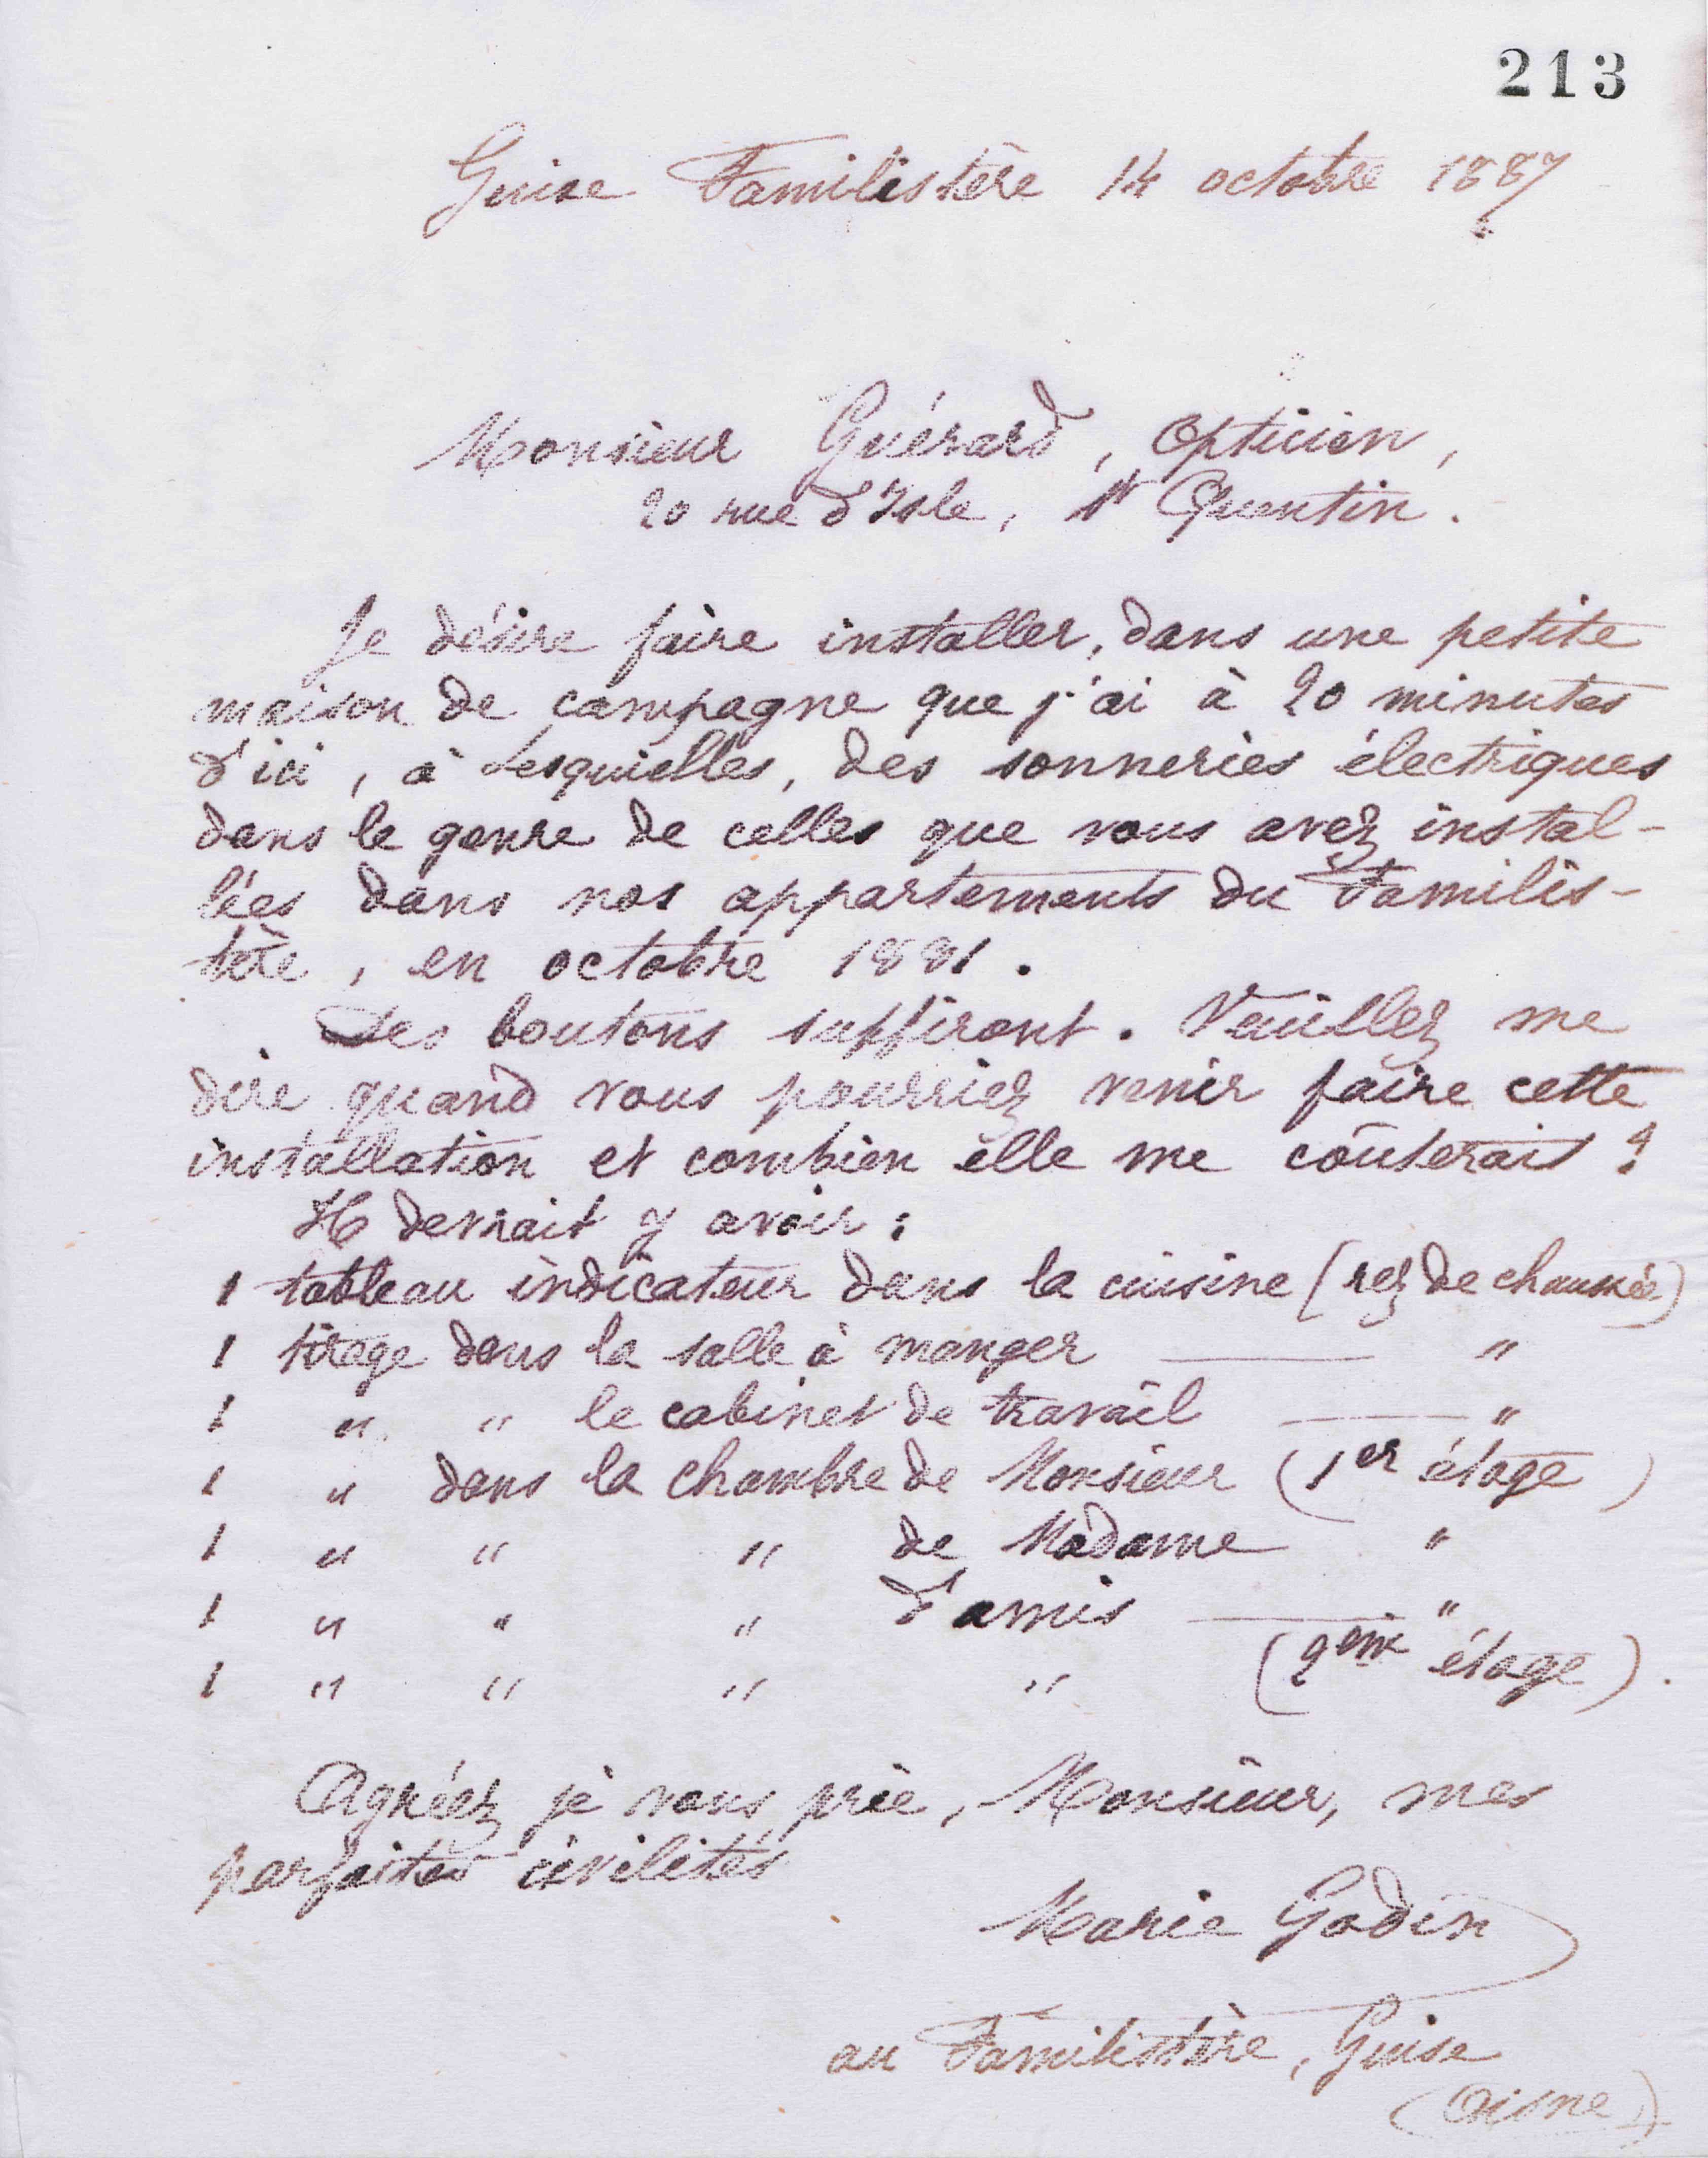 213
Guise Familistère 14 octobre 1887
Monsieur Guérard, Opticien,
20 rue d'Isle, St Quentin.
Je désire faire installer, dans une petite
maison de campagne que j'ai à 20 minutes
d'ici, à Lesquielles, des sonneries électriques
dans le genre de celles que vous avez instal-
lées dans nos appartements du Familis-
tère, en octobre 1881.
Des boutons suffiront. Veuillez me
dire quand vous pourriez venir faire cette
installation et combien elle me coûterait ?
Il devrait y avoir :
1 tableau indicateur dans la cuisine (rez de chaussée)
1 tirage dans la salle à manger — "
1 " " le cabinet de travail — "
1 " dans la chambre de Monsieur (1er étage)
1 " " " de Madame "
1 " " " d'amis — "
1 " " " " (2eme étage).
Agréez je vous prie, Monsieur, mes
parfaites civilités
Marie Godin
au Familistère, Guise
(Aisne)